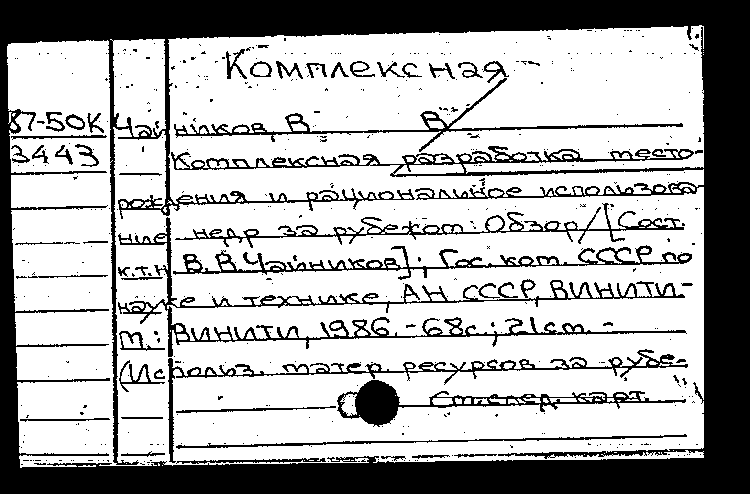 Комплексная
87-50К Чайников, В. В.
3443 Комплексная разработка место-
рождения и рациональное использова-
ние недр за рубежом: Обзор/[Сост.
к.т.н В.В.Чайников]; Гос. ком. СССР по
науке и технике, АН СССР, ВИНИТИ.-
М.: ВИНИТИ, 1986.-68с.; 21см. -
(Использ. матер. ресурсов за рубе-
См.след. карт.